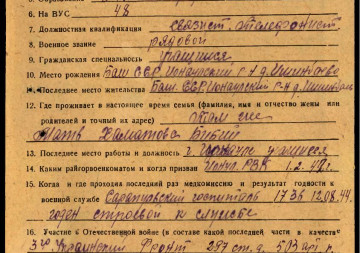 6. На ВУС 48
7. Должностная квалификация связист-телефонист
8. Военное звание рядовой
9. Гражданская специальность учащийся
10. Место рождения Баш. ССР. р-н д.
11. Последнее место жительства Баш. ССР р-н д.
12. Где проживает в настоящее время семья (фамилия, имя и отчество жены или
родителей и точный их адрес) там же
мать Биби
13. Последнее место работы и должность учащиеся
14. Каким райгорвоенкоматом и когда призван РВК 1.2.
15. Когда и где проходил последний раз медкомиссию и результат годности к
военной службе госпиталь 1736 12.08.44.
годен строевой к службе
16. Участие в Отечественной войне (в составе какой последней части в качестве
3-й Украинский Фронт 297 ст. д. 503 арт. п.